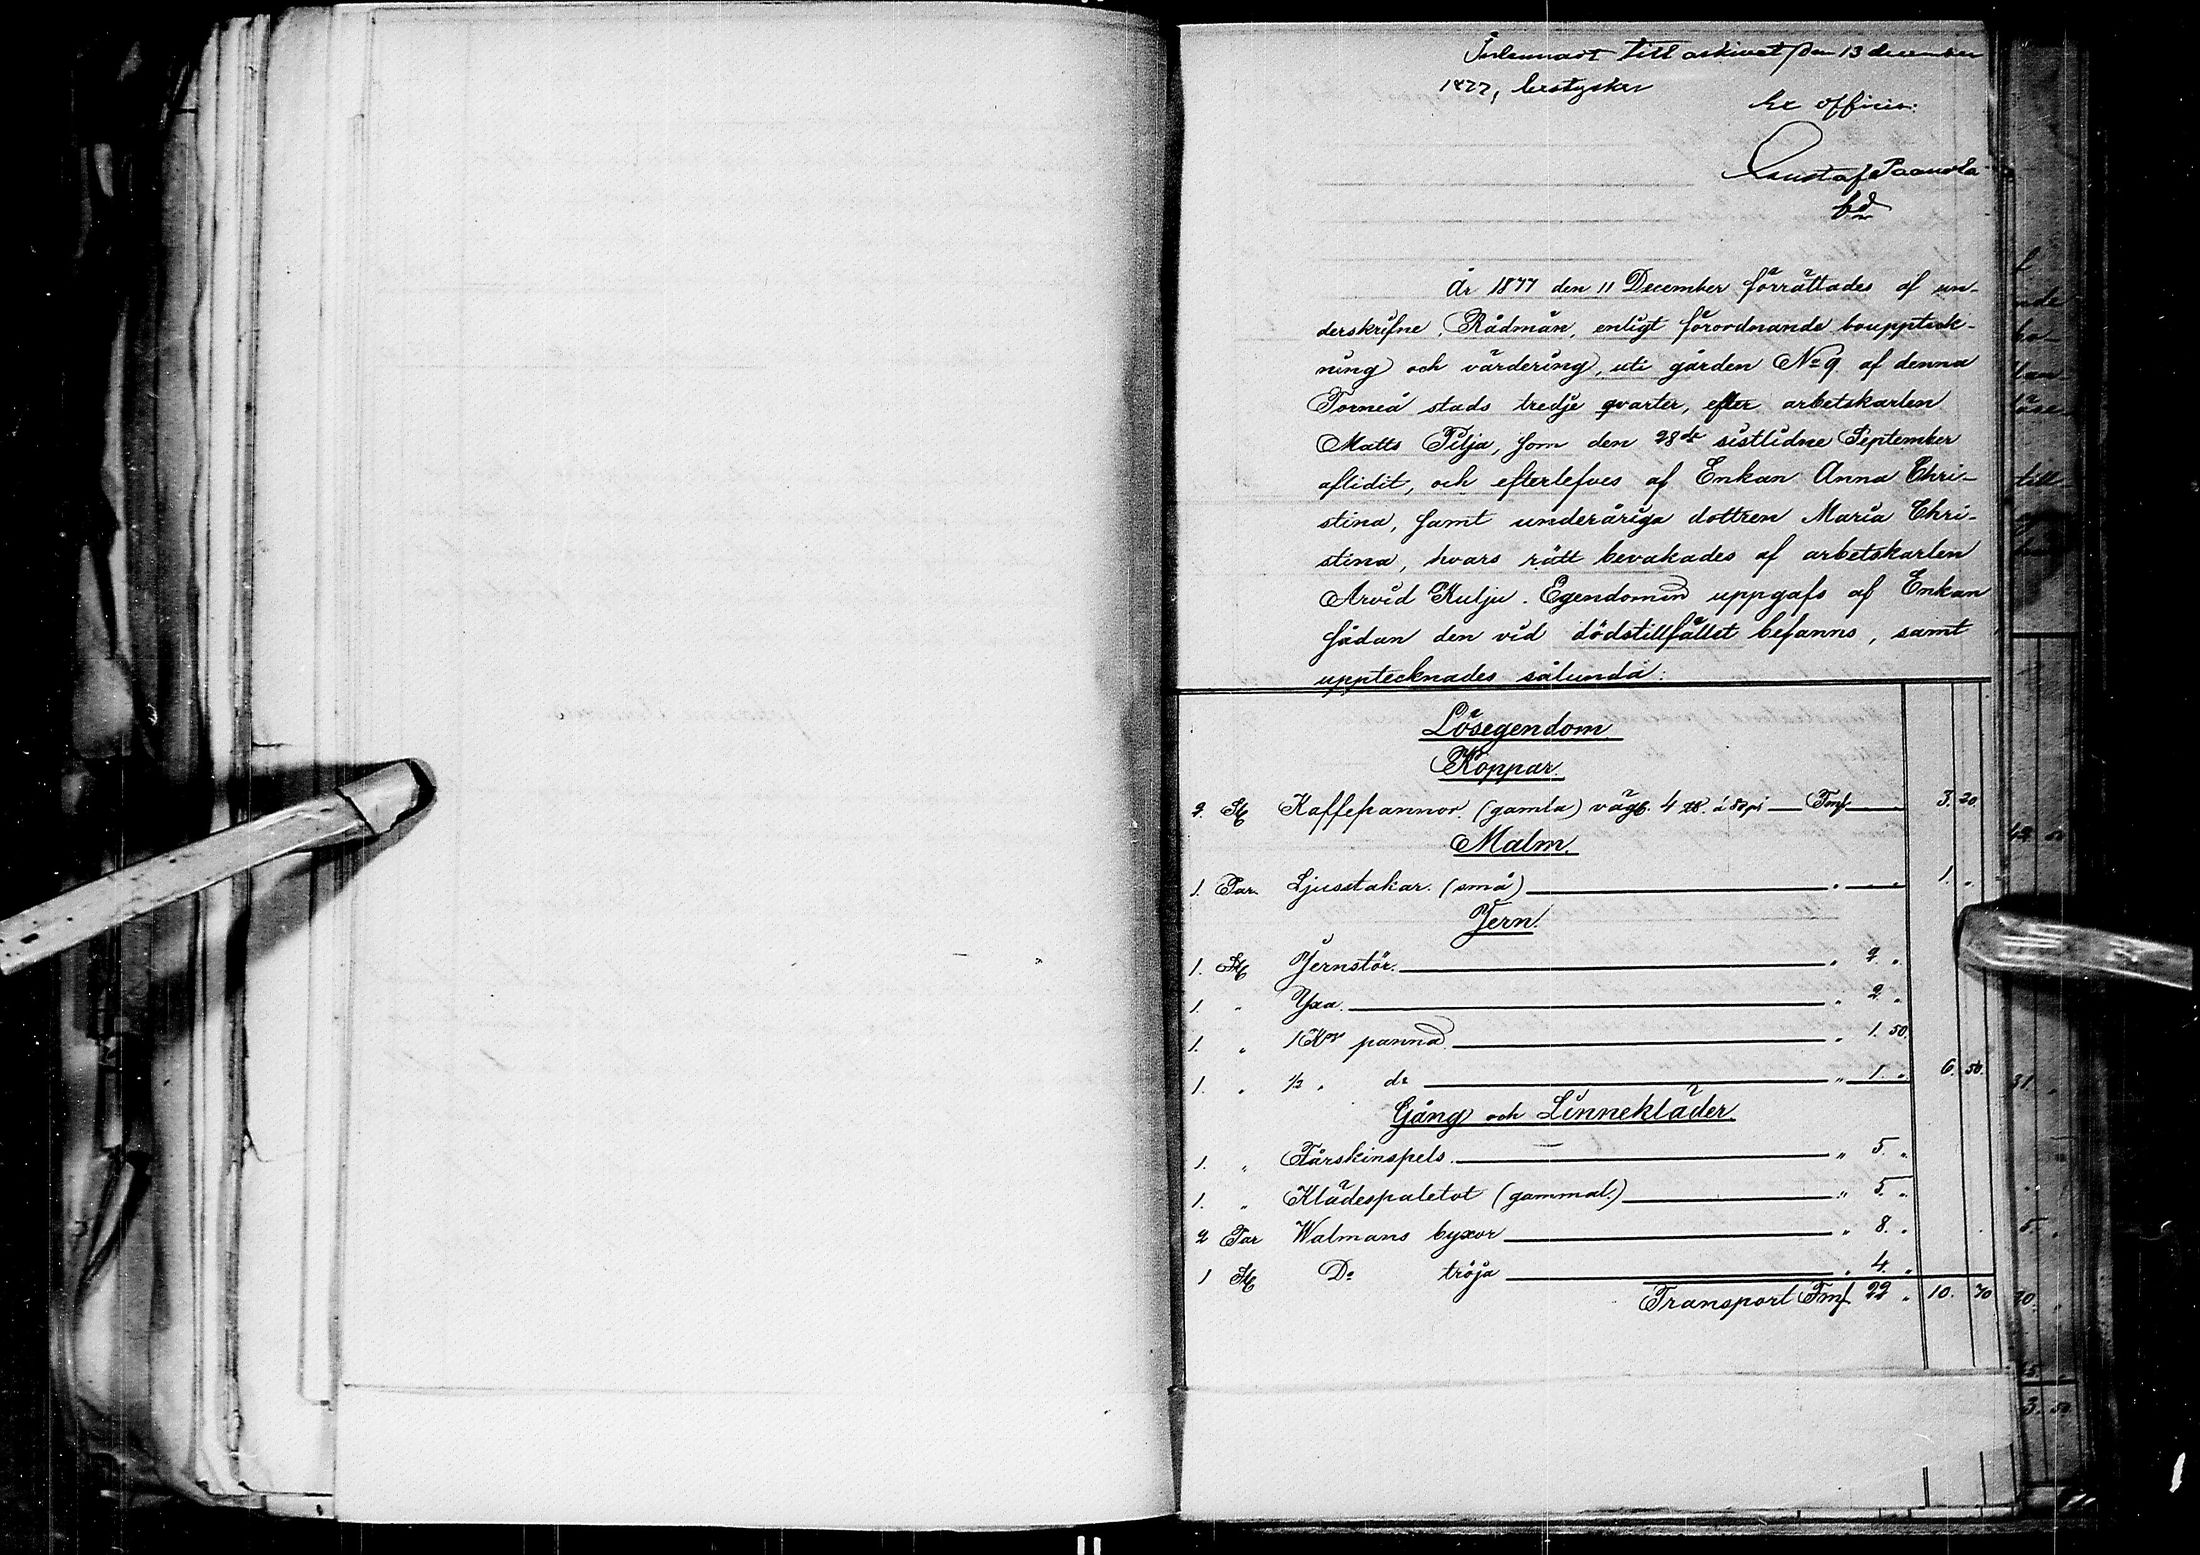 Inlemnadt till arkivet den 13 december
1877, bestyrker
Ex officio:
Gustaf Paanola
År 1877 den 11 December förrättades af un-
derskrifne, Rådman, enligt förordnande bouppteck-
ning och värdering, uti gården No 9 af denna
Torneå stads tredje qvarter, efter arbetskarlen
Matts Pilja, som den 28de sistlidne September
aflidit, och efterlefves af Enkan Anna Chri-
stina, samt underåriga dottren Maria Chri-
stina, hvars rätt bevakades af arbetskarlen
Arvid Kulju. Egendomen uppgafs af Enkan
sådan den vid dödstillfället befanns, samt
upptecknades sålunda:
Lösegendom
Koppar.
2. St Kaffepannor. (gamla) väg. 4 ℔. á 80 pi Fmf 3. 20.
Malm.
1. Par. Ljusstakar. (små) " 1. "
Jern.
1. St Jernstör. " 2. "
1. " Yxa. " 2 "
1. " 1 Kns panna. " 1. 50.
1. " ½ " do " 1. " 6. 50.
Gång och Linnekläder
1. " Fårskinspels. " 5. "
1. " Klädespaletot (gammal.) " 5. "
2 Par Walmans byxor " 8. "
1 St Do tröja " 4. "
Transport Fmf 22 " 10. 70